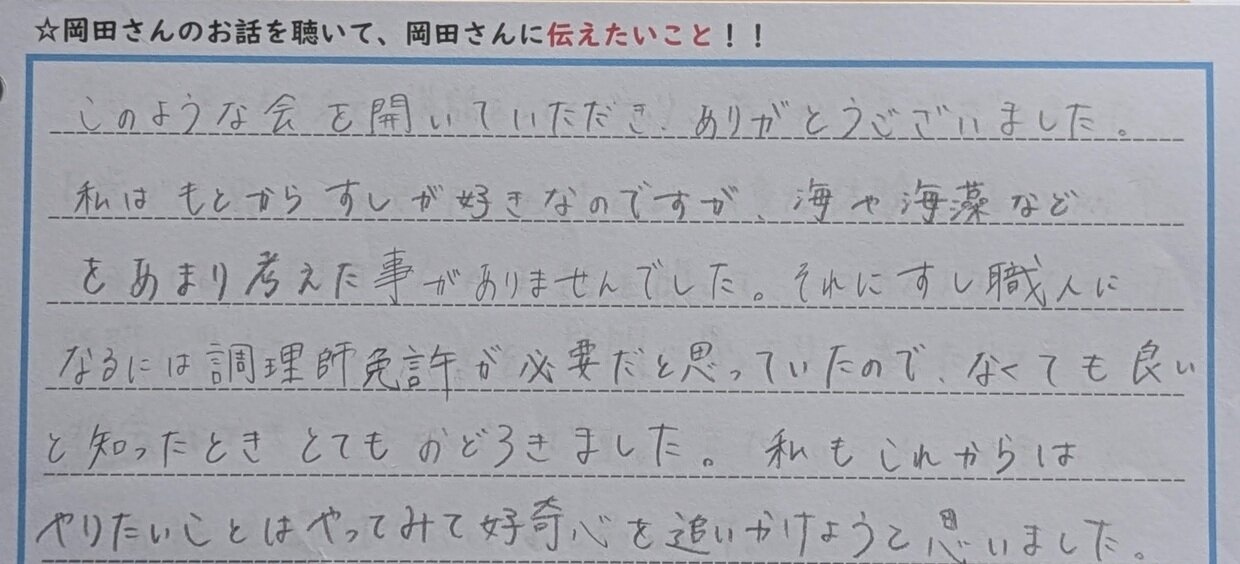 ☆岡田さんのお話を聴いて、岡田さんに伝えたいこと！！
このような会を開いていただき、ありがとうございました。
私はもとからすしが好きなのですが、海や海藻など
をあまり考えた事がありませんでした。それにすし職人に
なるには調理師免許が必要だと思っていたので、なくても良い
と知ったときとてもおどろきました。私もこれからは
やりたいことはやってみて好奇心を追いかけようと思いました。